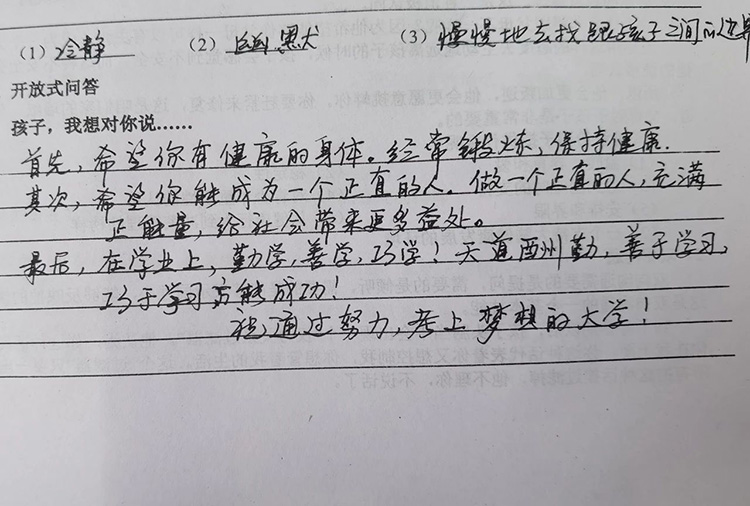 (1) 冷静 (2) 幽默 (3) 慢慢地去找跟孩子之间的边界
开放式问答
孩子，我想对你说……
首先，希望你有健康的身体。经常锻炼，保持健康.
其次，希望你能成为一个正直的人. 做一个正直的人，充满
正能量，给社会带来更多益处。
最后，在学业上，勤学，善学，巧学！天道酉州勤，善于学习，
巧于学习方能成功！
祝通过努力，考上梦想的大学！